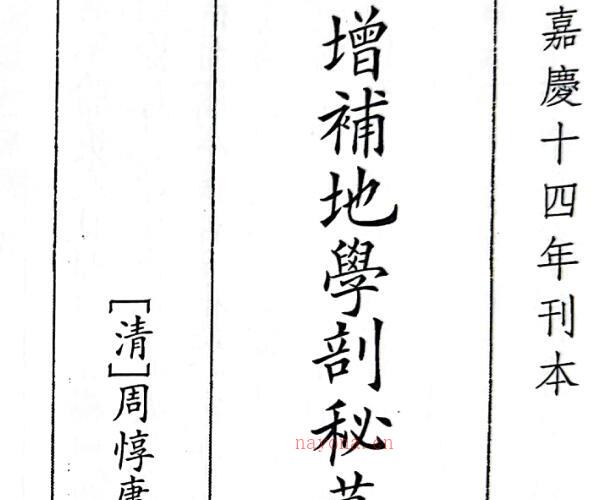 嘉慶十四年刊本
增補地學剖秘
[清]周惇
nayona.cn